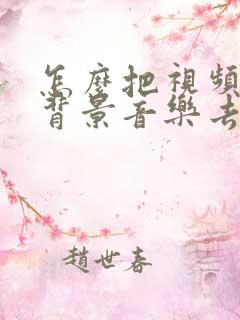 怎麼把視頻
背景音樂去
趙世春